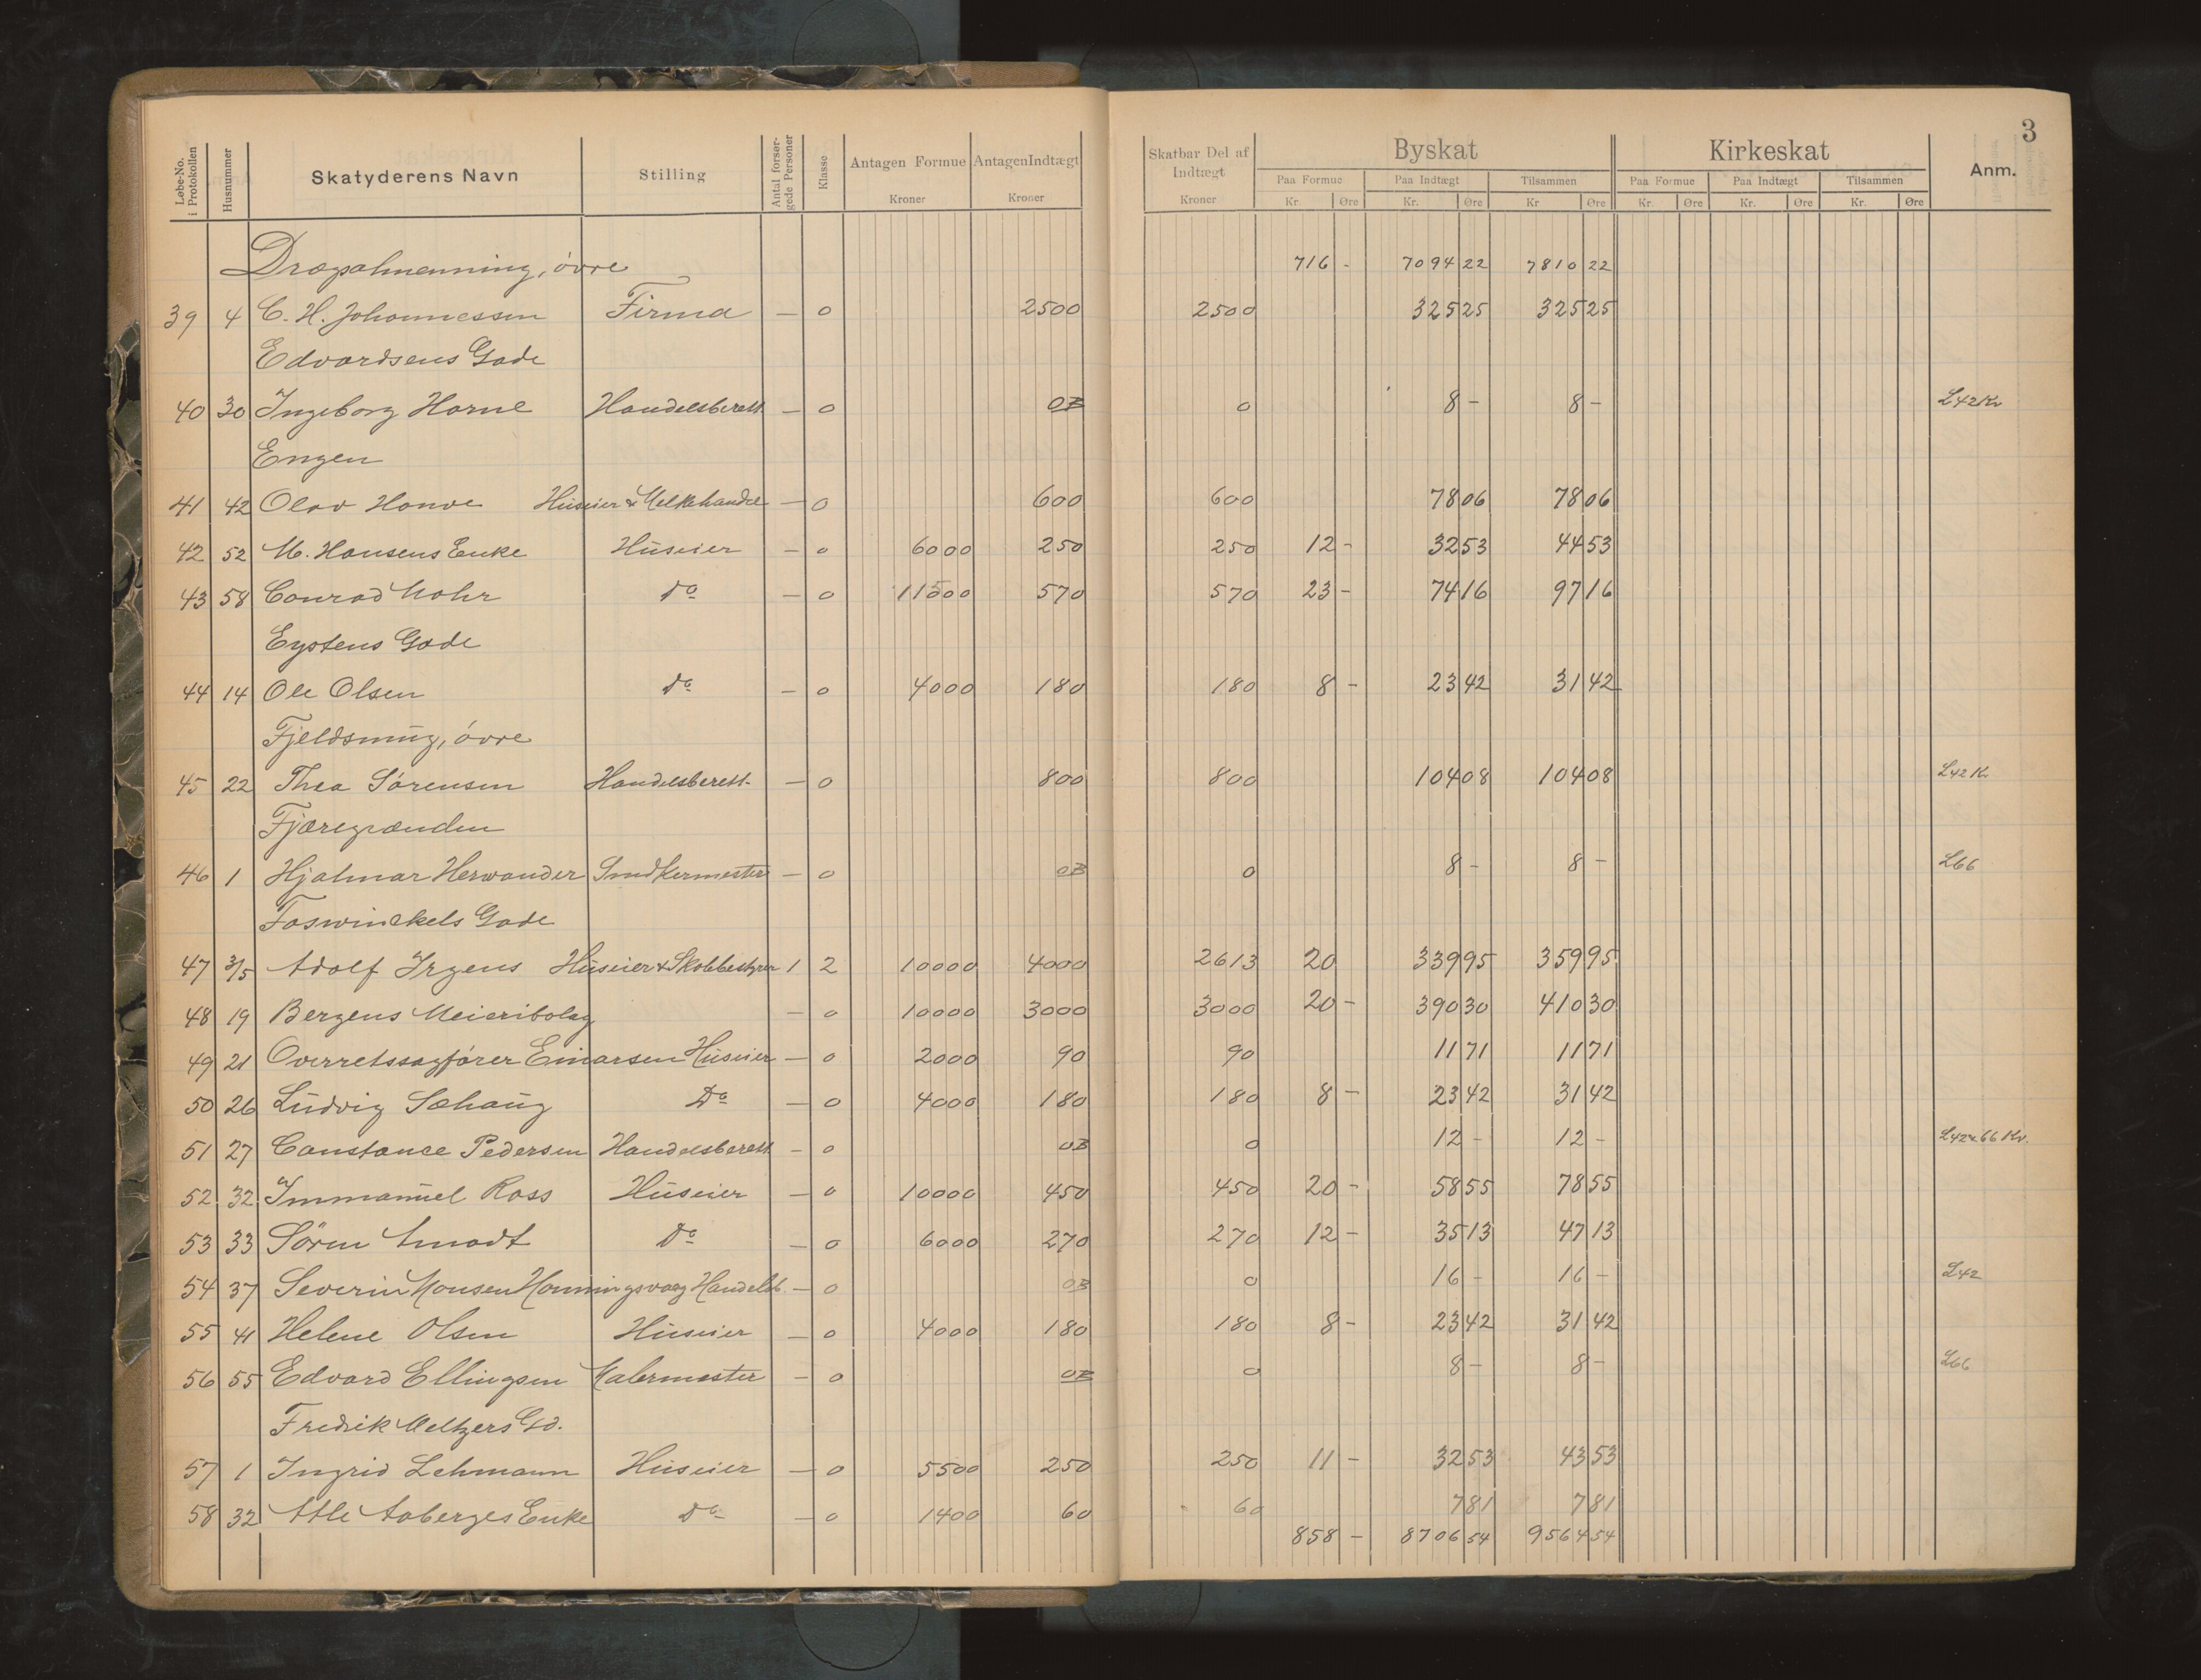 3
Løbe-No. i Protokollen Husnummer Skatyderens Navn Stilling Antal forsørgede Personer Klasse Antagen Formue Kroner Antagen Indtægt Kroner Skatbar Del af Indtægt Kroner Byskat Paa Formue Kr. Øre Paa Indtægt Kr. Øre Tilsammen Kr Øre Kirkeskat Paa Formue Kr. Øre Paa Indtægt Kr. Øre Tilsammen Kr. Øre Anm.
Drægsalmenning, øvre 716 - 7094 22 7810 22
39 4 C. H. Johannessen Firma — 0 2500 2500 325 25 325 25
Edvardsens Gade
40 30 Ingeborg Horne Handelsberett. — 0 0B 0 8 - 8 - L42Kv
Engen
41 42 Olav Hanve Huseier & Melkehandel — 0 600 600 78 06 78 06
42 52 M. Hansens Enke Huseier — 0 6000 250 250 12 - 32 53 44 53
43 58 Conrad Mohr do — 0 11500 570 570 23 - 74 16 97 16
Eystens Gade
44 14 Ole Olsen do — 0 4000 180 180 8 - 23 42 31 42
Fjeldsmug, øvre
45 22 Thea Sørensen Handelsberett. — 0 800 800 104 08 104 08 L42K
Fjæregrænden
46 1 Hjalmar Herwander Snedkermester — 0 0B 0 8 - 8 - L66
Foswinckels Gade
47 3/5 Adolf Irgens Huseier & Skolebestyrer 1 2 10000 4000 2613 20 339 95 359 95
48 19 Bergens Meieribolag — 0 10000 3000 3000 20 - 390 30 410 30
49 21 Overretssagfører Einarsen Huseier — 0 2000 90 90 11 71 11 71
50 26 Ludvig Sæhaug Do — 0 4000 180 180 8 - 23 42 31 42
51 27 Constance Pedersen Handelsberett. — 0 0B 0 12 - 12 - L42 & 66 Kv.
52 32 Immanuel Ross Huseier — 0 10000 450 450 20 - 58 55 78 55
53 33 Søren Smodt do — 0 6000 270 270 12 - 35 13 47 13
54 37 Severin Monsen Honningsvaag Handelsb. — 0 0B 0 16 - 16 - L42
55 41 Helene Olsen Huseier — 0 4000 180 180 8 - 23 42 31 42
56 55 Edvard Ellingsen Malermester — 0 0B 0 8 - 8 - L66
Fredrik Meltzers Gd.
57 1 Ingrid Lehmann Huseier — 0 5500 250 250 11 - 32 53 43 53
58 32 Atle Aaberges Enke do — 0 1400 60 60 7 81 7 81
858 - 8706 54 9564 54